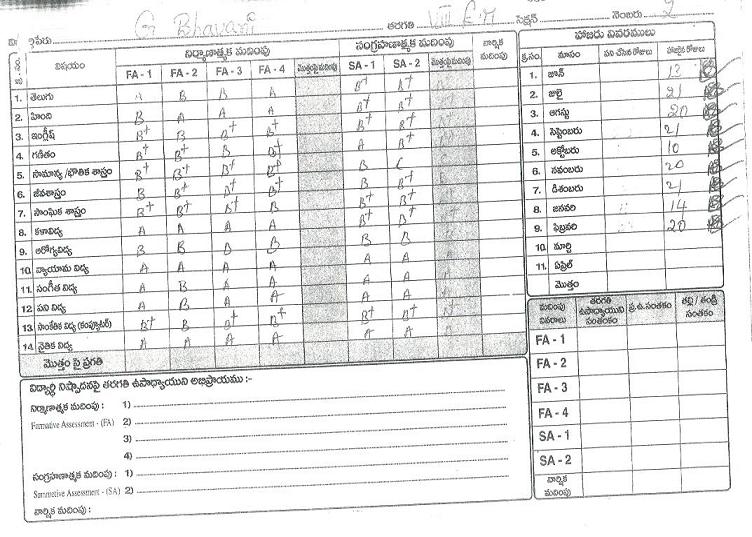 పేరు G. Bhavani తరగతి VIII E.M సెక్షన్ నెంబరు 2
విషయం నిర్మాణాత్మక మదింపు సంగ్రహణాత్మక మదింపు వార్షిక మదింపు
FA - 1 FA - 2 FA - 3 FA - 4 మొత్తంపై మదింపు SA - 1 SA - 2 మొత్తంపై మదింపు
1. తెలుగు A B B A B+ B+
2. హింది B A A A B+ B+
3. ఇంగ్లీష్ B+ B B+ B+ B+ B+
4. గణితం B+ B+ B B+ A B+
5. సామాన్య / భౌతిక శాస్త్రం B+ B+ B+ B+ B C
6. జీవశాస్త్రం B B+ B+ B+ B+
7. సాంఘిక శాస్త్రం B+ B+ B+ B B+ B+
8. కళావిద్య A A A A B+ B+
9. ఆరోగ్యవిద్య B B B B B B
10. వ్యాయామ విద్య A A A A A A
11. సంగీత విద్య A B A A A A
12. పని విద్య A B A A A A
13. సాంకేతిక విద్య (కంప్యూటర్) B+ B B+ B+ A A
14. నైతిక విద్య A A A A A A
మొత్తం పై ప్రగతి
హాజరు వివరములు
క్ర.సం. మాసం పని చేసిన రోజులు హాజరైన రోజులు
1. జూన్ 12
2. జులై 21
3. ఆగస్టు 20
4. సెప్టెంబరు 21
5. అక్టోబరు 10
6. నవంబరు 20
7. డిశంబరు 21
8. జనవరి 14
9. ఫిబ్రవరి 20
10. మార్చి
11. ఏప్రిల్
మొత్తం
మదింపు వివరాలు తరగతి ఉపాధ్యాయుని సంతకం ప్ర.ఉ.సంతకం తల్లి / తండ్రి సంతకం
FA - 1
FA - 2
FA - 3
FA - 4
SA - 1
SA - 2
వార్షిక మదింపు
విద్యార్థి నిష్పాదనపై తరగతి ఉపాధ్యాయుని అభిప్రాయము :-
నిర్మాణాత్మక మదింపు : 1)
Formative Assessment - (FA) 2)
3)
4)
సంగ్రహణాత్మక మదింపు : 1)
Summative Assessment - (SA) 2)
వార్షిక మదింపు :